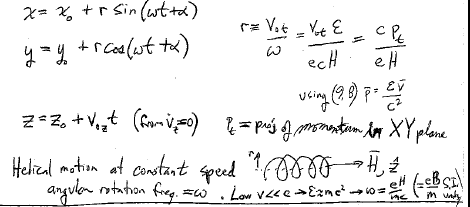 x = x₀ + r sin(ωt+α)
y = y₀ + r cos(ωt+α)
r = V₀t/ω = V₀t ℰ/ecH = c Pt/eH
using (9.8) p̄ = ℰv̄/c²
z = z₀ + V₀z t (from v̇z=0)
Pt = proj of momentum in XY plane
Helical motion at constant speed r↑ → H̄, ẑ
angular rotation freq. = ω. Low v<<c → ℰ≈mc² → ω = eH/mc (= eB/m S.I. units)